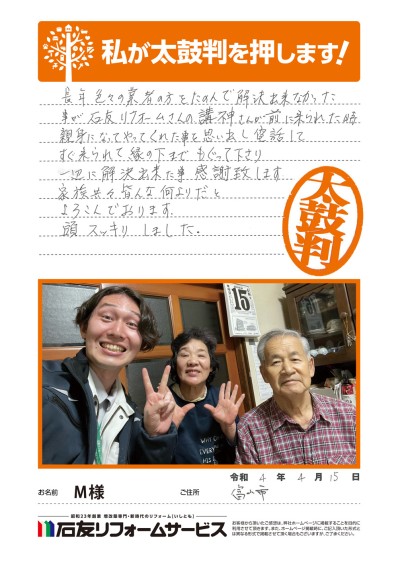 私が太鼓判を押します!
長年色々の業者の方をたのんで解決出来なかった
事が石友リフォームさんの講神さんが前に来られた時
親身になってやってくれた事を思い出し電話して
すぐ来られて縁の下までもぐって下さり
一辺に解決出来た事感謝致します
家族共々皆んな何よりだと
よろこんでおります.
頭スッキリしました.
太鼓判
15
令和 4 年 4 月 15 日
お名前 M様 ご住所 富山市
昭和33年創業 増改築専門・新時代のリフォーム(いしとも)
石友リフォームサービス